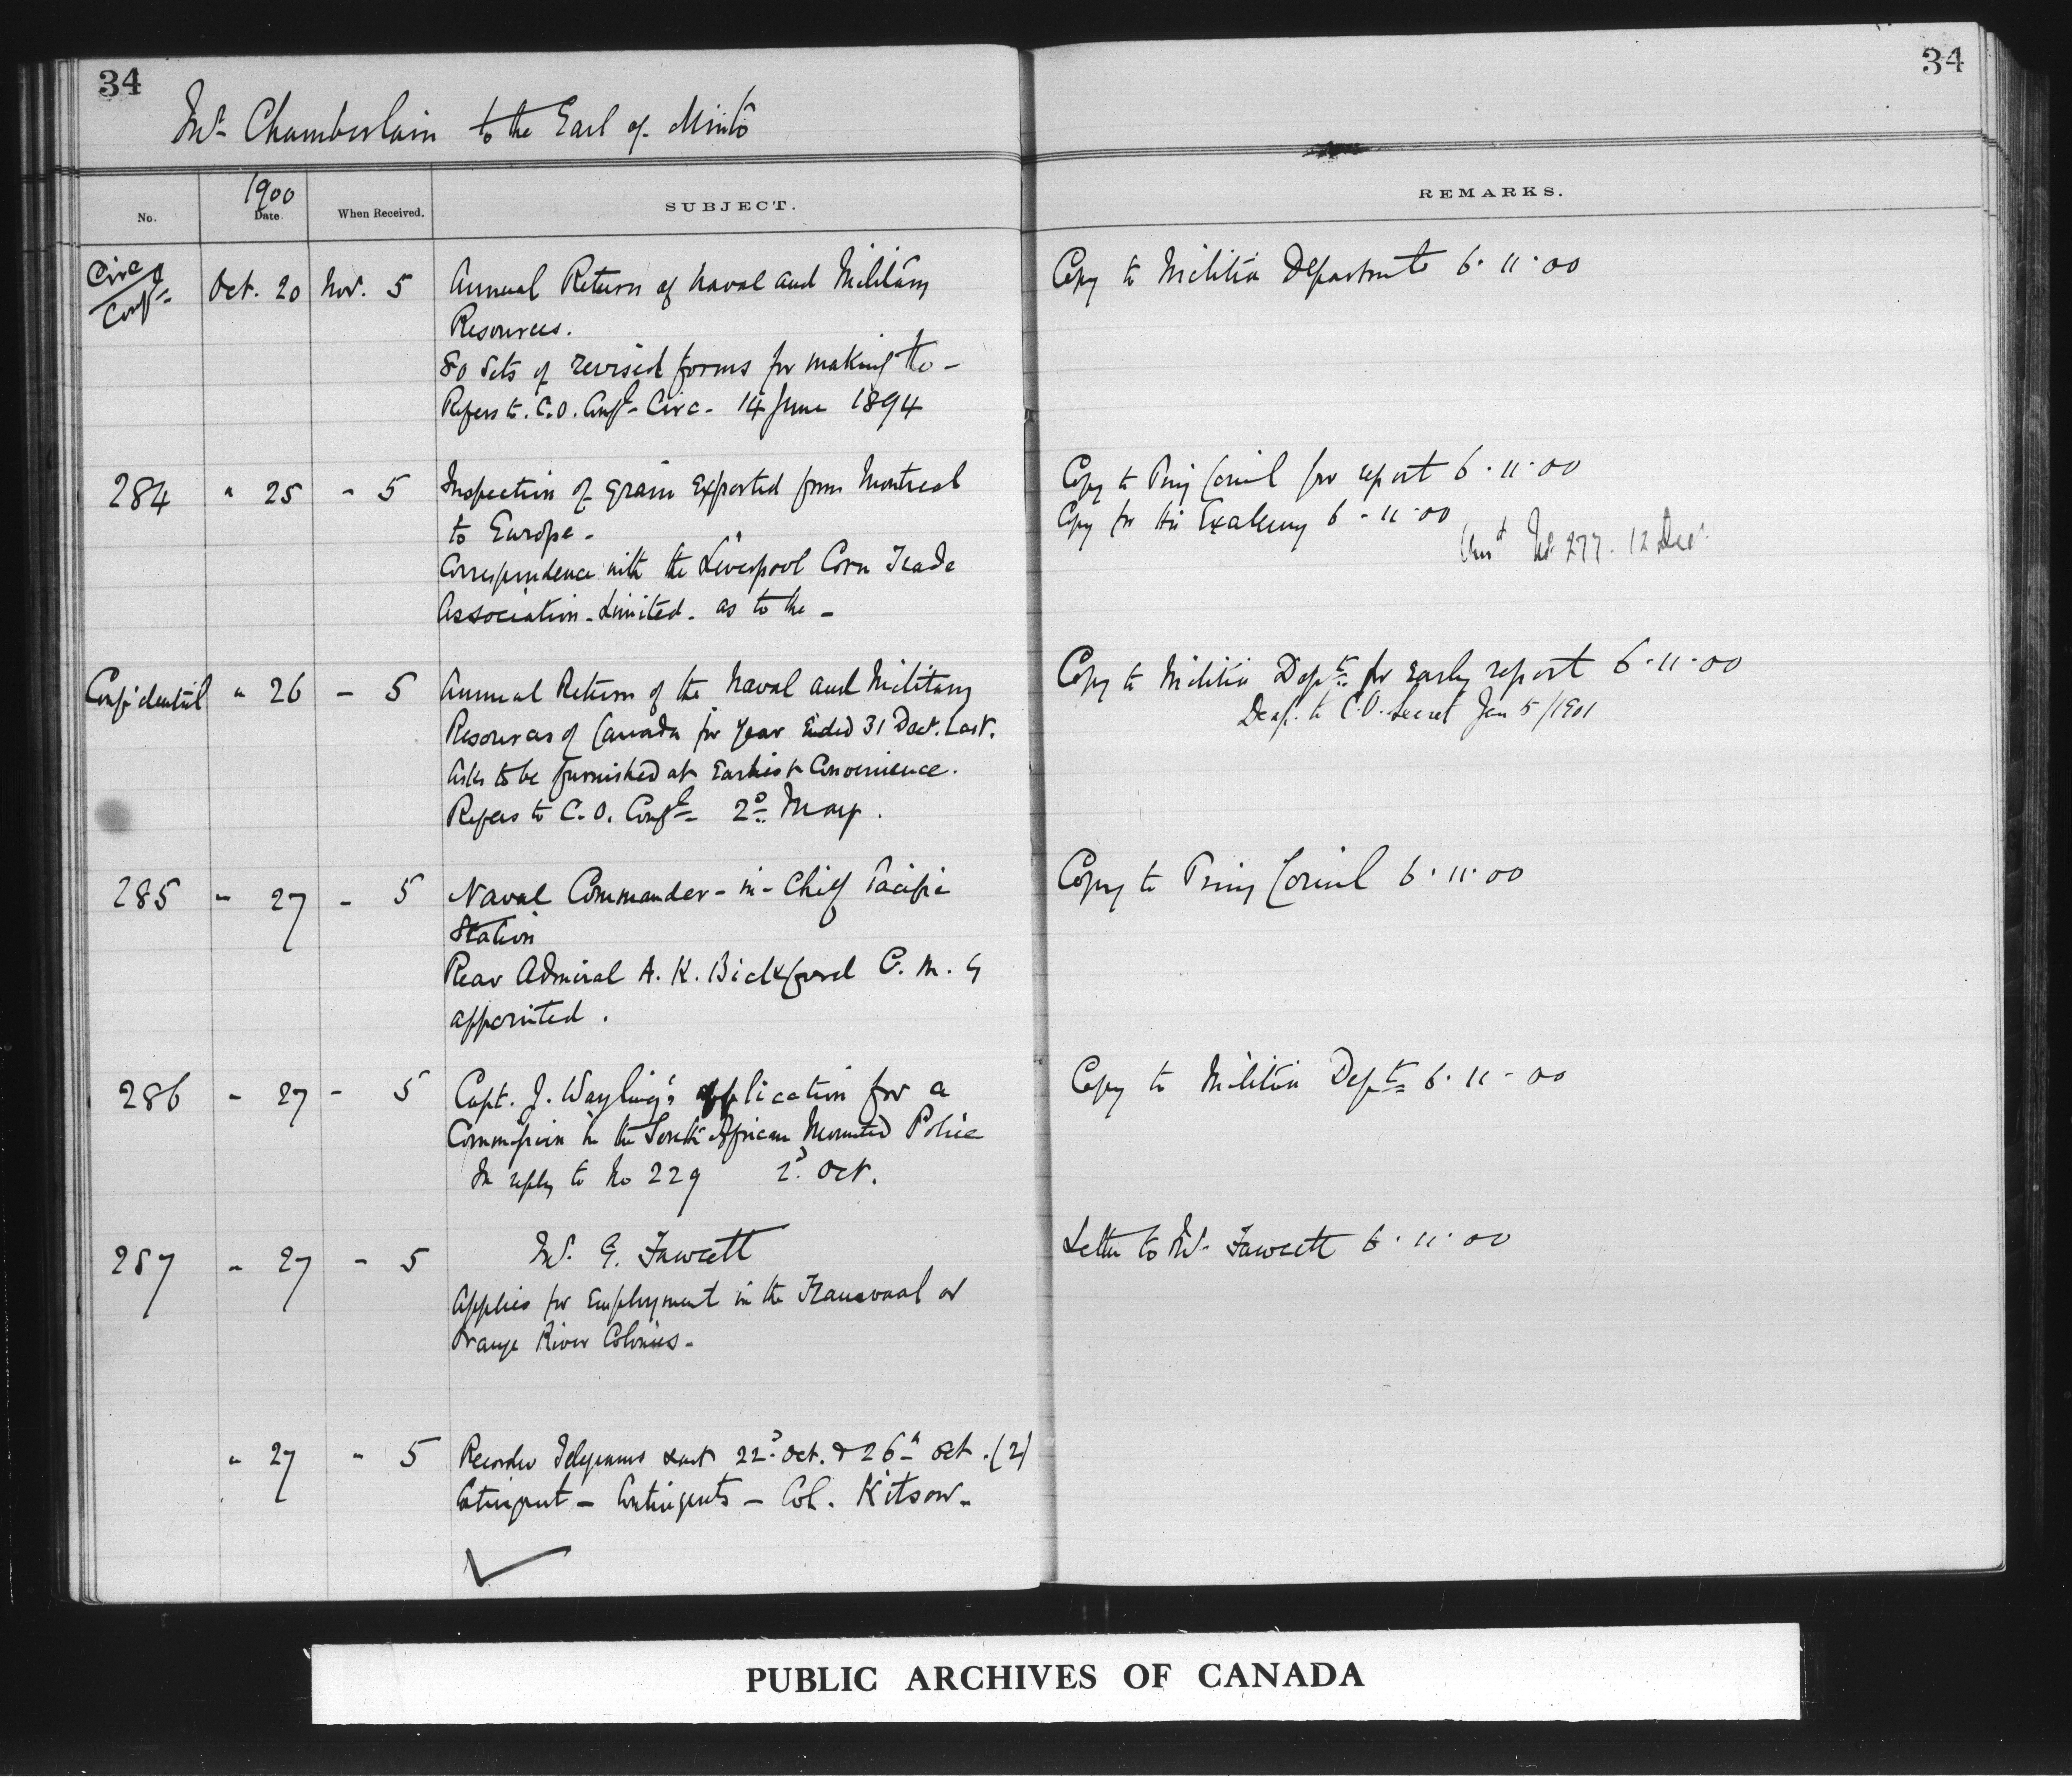 34
34
Mr. Chamberlain to the Earl of Minto
1900
No.
Date.
When Received.
SUBJECT.
REMARKS.
Circ Confl Oct. 20 Nov. 5 Annual Return of Naval and Military
Resources.
80 Sets of revised forms for making the -
Refers to C.O. Confl Circ - 14 June 1894
Copy to Militia Department 6.11.00
284 " 25 - 5 Inspection of Grain Exported from Montreal
to Europe -
Correspondence with the Liverpool Corn Trade
Association - Limited - as to the -
Copy to Privy Council for report 6.11.00
Copy for His Excellency 6-11-00
Ansd No 277. 12 Decr
Confidential " 26 - 5 Annual Return of the Naval and Military
Resources of Canada for Year Ended 31 Dec. Last.
Asks to be furnished at Earliest Convenience.
Refers to C.O. Confl 2d May.
Copy to Militia Dept for Early report 6.11.00
Desp. to C.O. Secret Jan 5/1901
285 - 27 - 5 Naval Commander-in-Chief Pacific
Station
Rear Admiral A. K. Bickford C. M. G
appointed.
Copy to Privy Council 6.11.00
286 - 27 - 5 Capt. J. Wayling's application for a
Commission in the South African Mounted Police
In reply to No 229 2d. Oct.
Copy to Militia Dept 6.11-00
287 - 27 - 5 Mr. G. Fawcett
Applies for Employment in the Transvaal or
Orange River Colonies -
Letter to Mr. Fawcett 6.11.00
" 27 " 5 Recorder Telegrams sent 22d. Oct. & 26th Oct. (2)
- Contingents - Col. Kitson -
PUBLIC ARCHIVES OF CANADA